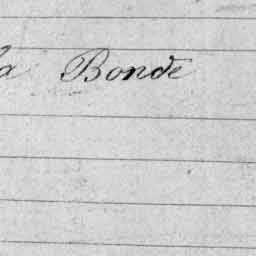 a Bonde